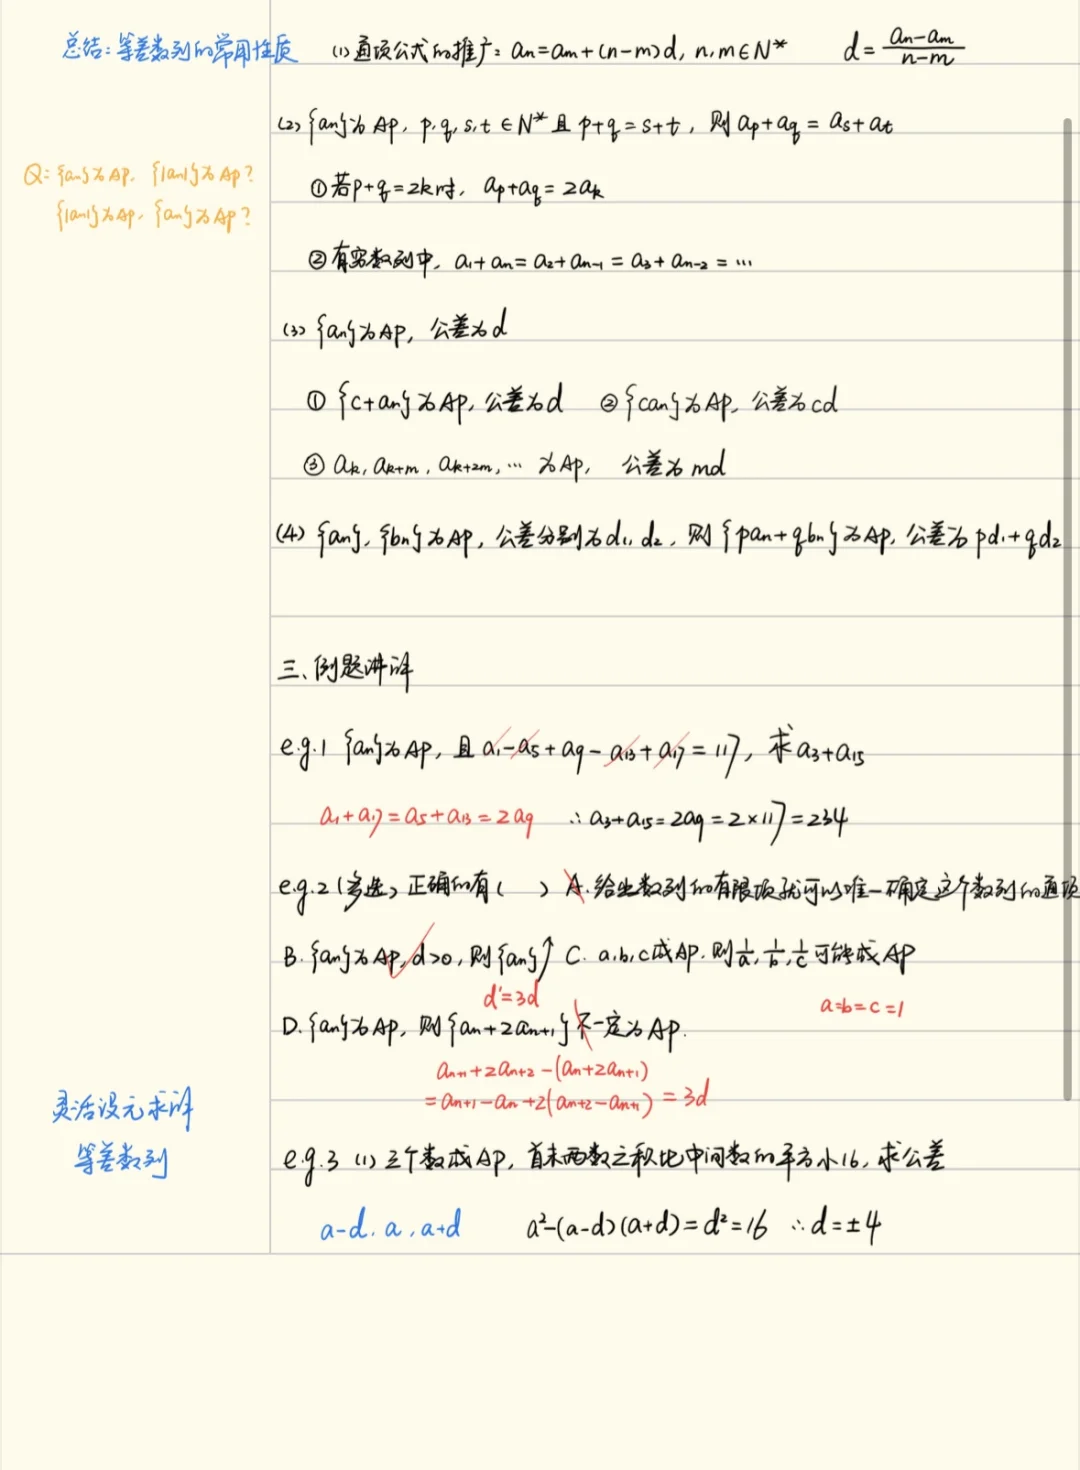 总结:等差数列的常用性质 (1)通项公式的推广:an=am+(n-m)d, n,m∈N* d=(an-am)/(n-m)
(2) {an}为AP, p,q,s,t∈N*且p+q=s+t, 则ap+aq=as+at
Q: {an}为AP, {|an|}为AP?
①若p+q=2k时, ap+aq=2ak
{|an|}为AP, {an}为AP?
②有穷数列中, a1+an=a2+an-1=a3+an-2=…
(3) {an}为AP, 公差为d
① {c+an}为AP, 公差为d ②{can}为AP, 公差为cd
③ ak, ak+m, ak+2m, … 为AP, 公差为md
(4) {an}, {bn}为AP, 公差分别为d1, d2, 则{pan+qbn}为AP, 公差为pd1+qd2
三、例题讲解
e.g.1 {an}为AP, 且a1-a5+a9-a13+a17=117, 求a3+a15
a1+a17=a5+a13=2a9 ∴a3+a15=2a9=2×117=234
e.g.2 (多选) 正确的有( ) A.给出数列的有限项就可以唯一确定这个数列的通项
B. {an}为AP, d>0, 则{an}↑ C. a,b,c成AP, 则1/a, 1/b, 1/c可能成AP
d'=3d a=b=c=1
D. {an}为AP, 则{an+2an+1}不一定为AP.
an+1+2an+2-(an+2an+1)
=an+1-an+2(an+2-an+1)=3d
灵活设元求解
等差数列
e.g.3 (1) 三个数成AP, 首末两数之积比中间数的平方小16, 求公差
a-d, a, a+d a²-(a-d)(a+d)=d²=16 ∴d=±4